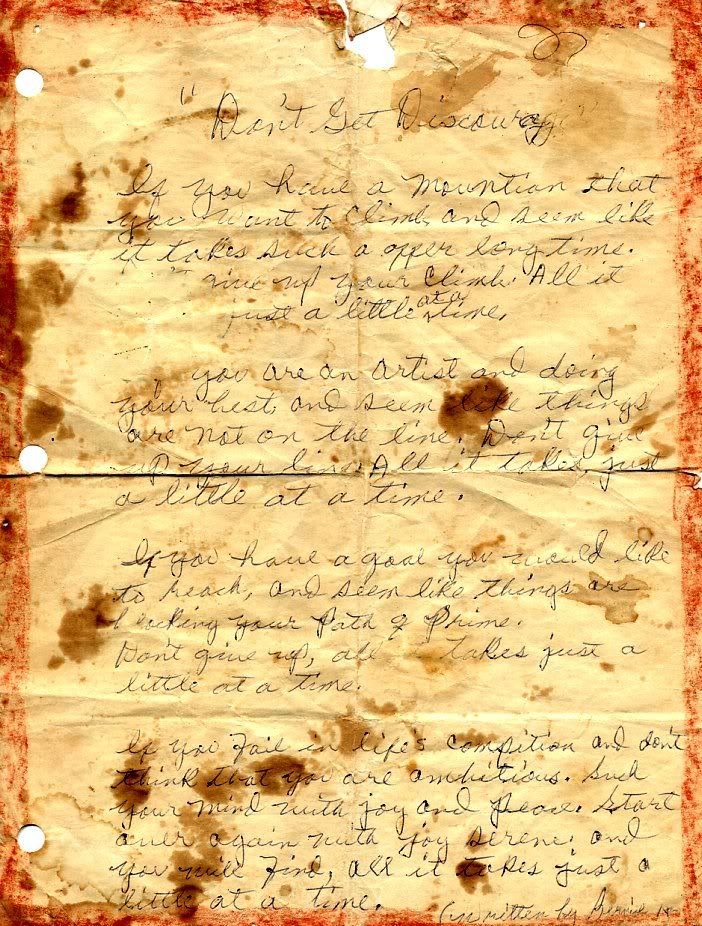 "Don't Get Discourag
If you have a mountian that
you want to climb, and seem like
it takes such a offer long time.
give up your climb. All it
just a little at a time.
you are an artist and doing
your best, and seem like things
are not on the line. Don't give
up your line. All it takes, just
a little at a time.
If you have a goal you would like
to reach, and seem like things are
locking your Path & Prime.
Don't give up, all takes just a
little at a time.
If you Fail in life's compition and don't
think that you are ambitious. Such
your mind with joy and peace. Start
over again with joy serene. and
you will Find, all it takes just a
little at a time.
written by